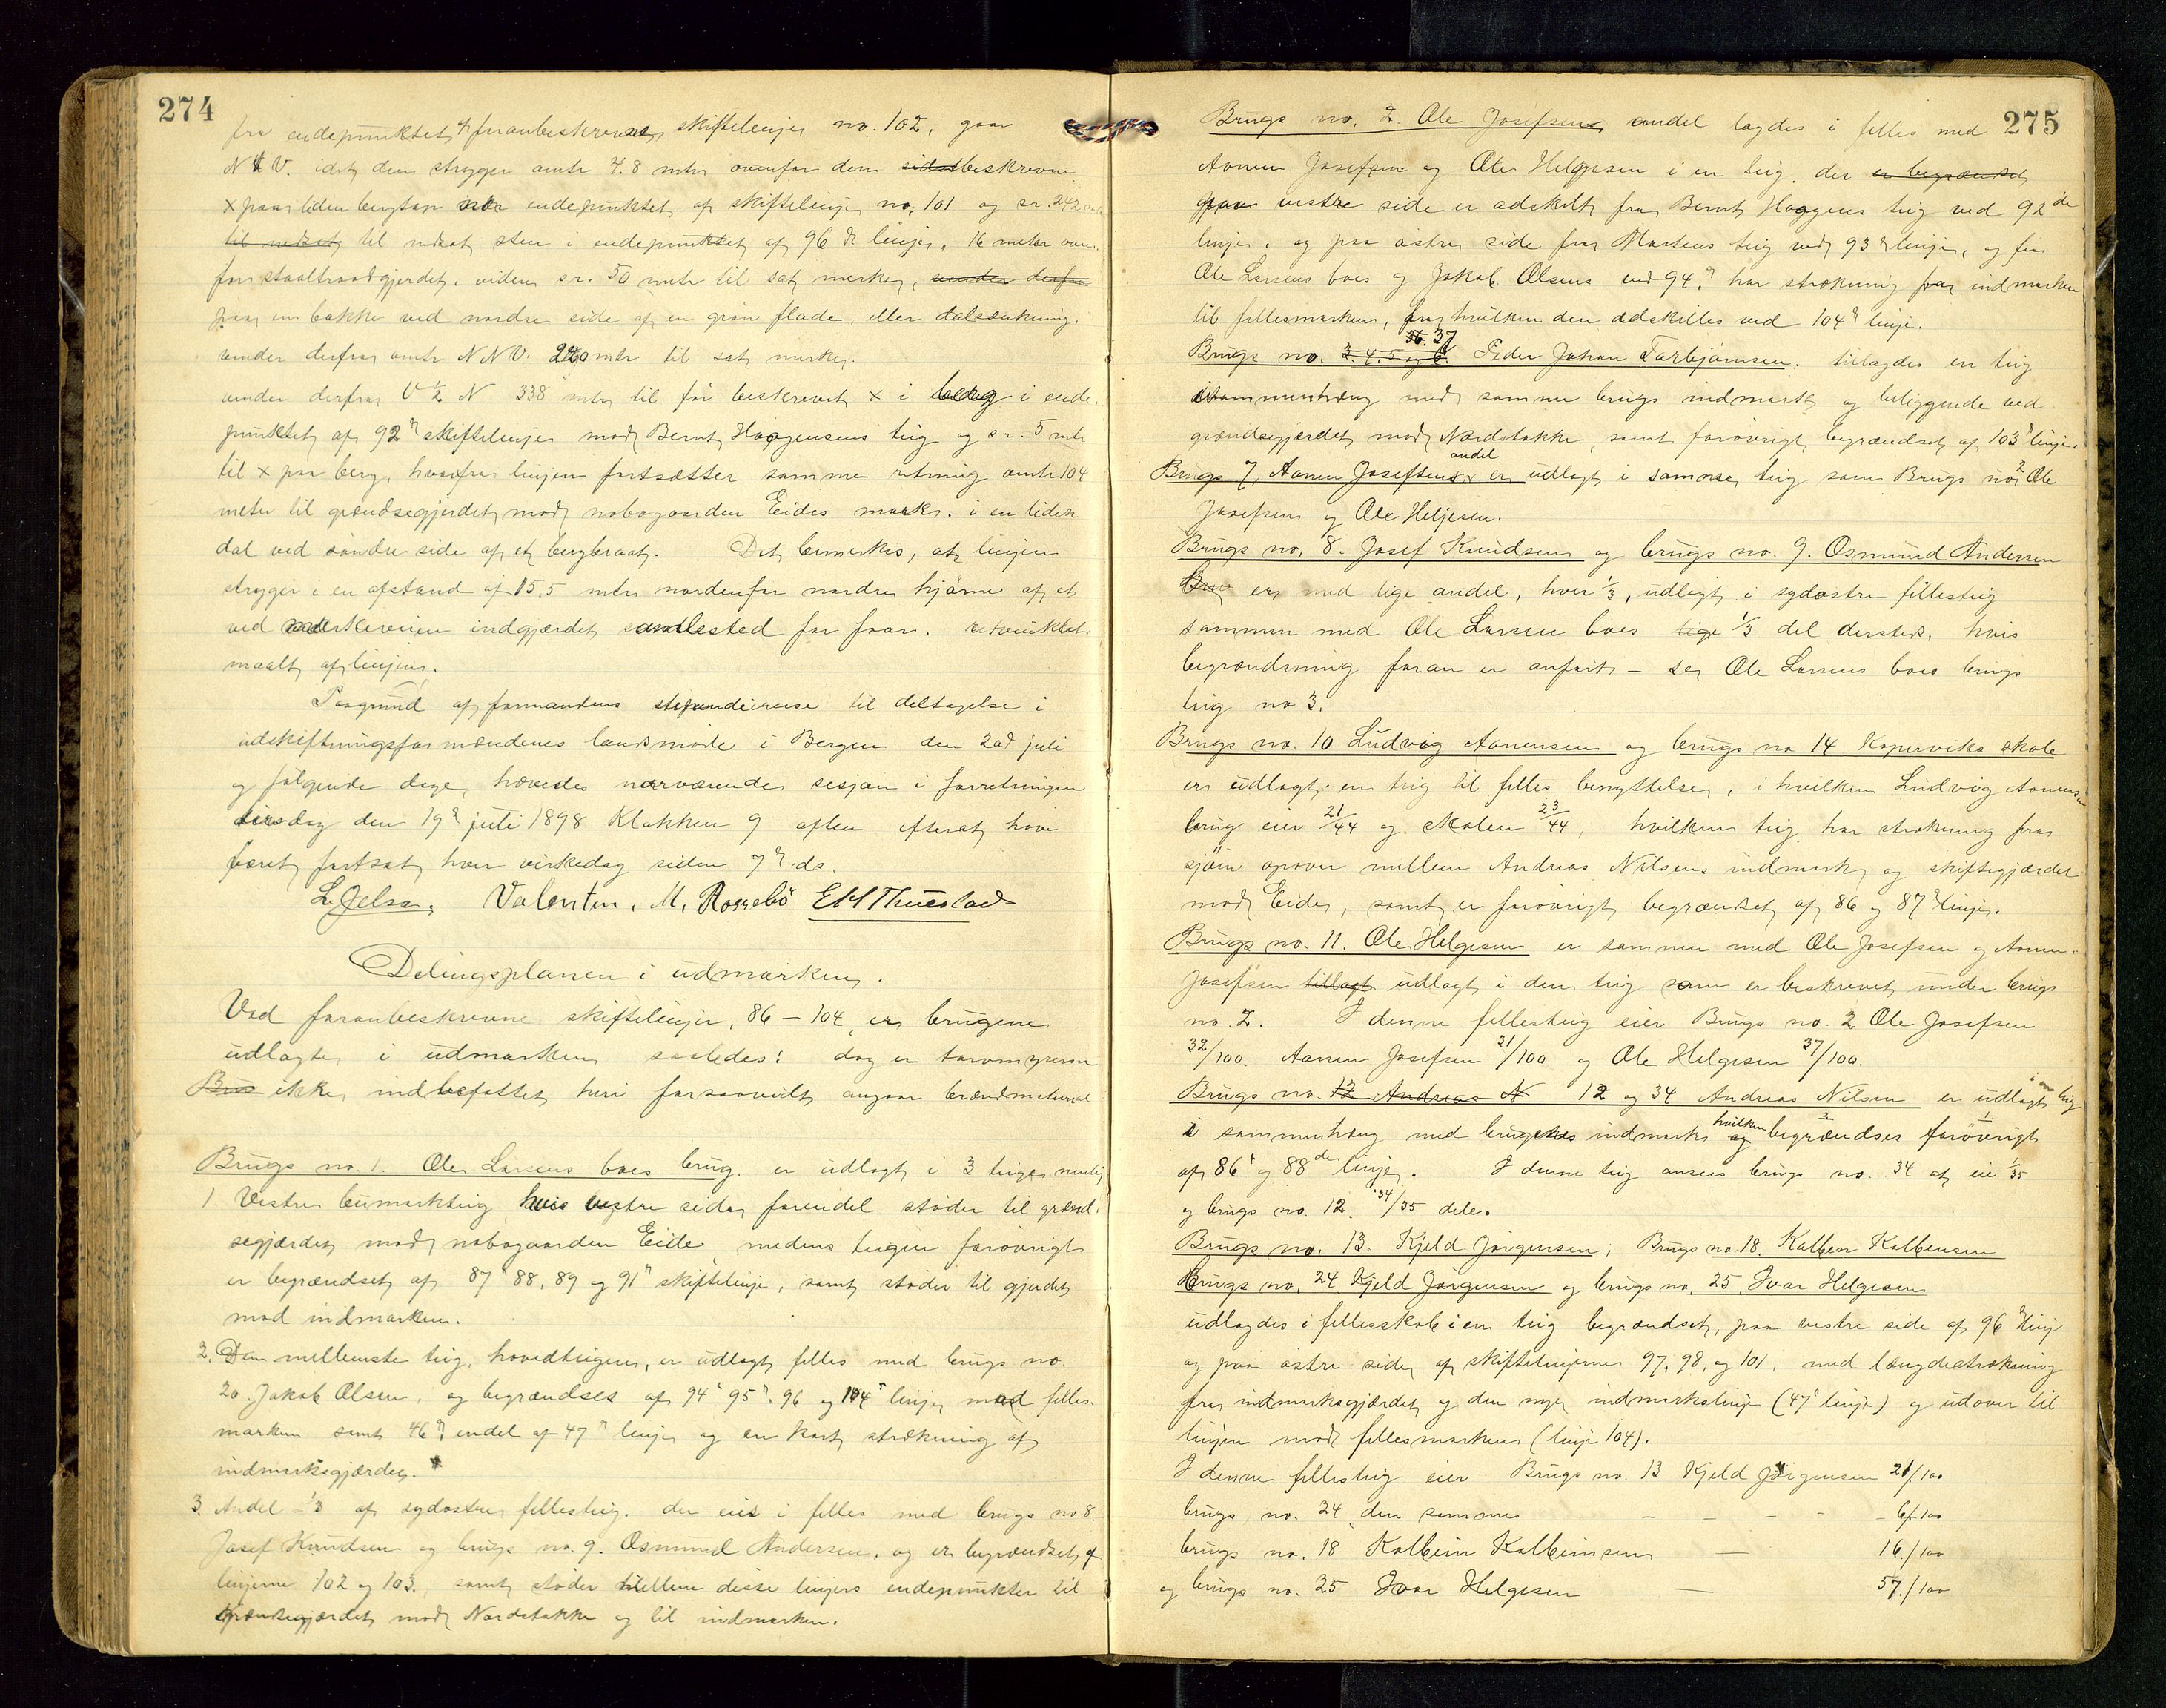 274
fra endepunktet af foranbeskrevne skiftelinje no. 102, gaar
N t V. idet den stryger omtr 4.8 mtr ovenfor den sidstbeskrevne
x paa liden bergtop endepunktet af skiftelinje no. 101 og er 242
til nedsat til nedsat sten i endepunktet af 96 d linje, 16 meter oven-
for staaltraadgjerdet, videre er. 50 mtr til sat merke, vender derfra
paa en bakke ved nordre side af en grøn flade, eller dalsænkning.
vender derfra omtr N N V. 220 mtr til sat merke.
vender derfra V ½ N 338 mtr til før beskrevet x i berg i ende-
punktet af 92 d skiftelinje mod Bernt Haagensens teig og er. 5 mtr
til x paa berg, hvorfra linjen fortsætter samme retning omtr 104
meter til grændsegjerdet mod nabogaarden Eides mark. i en liden
dal ved søndre side af et bergbraat. Det bemerkes, at linjen
stryger i en afstand af 15,5 mtr nordenfor nordre hjørne af et
ved markeveien indgjærdet samlested for faar. retvinklet
maalt af linjen.
Paagrund af formandens stipendiereise til deltagelse i
udskiftningsformændenes landsmøde i Bergen den 20d juli
og følgende dage, hævedes nærværende sesjon i forretningen
tirsdag den 19 d juli 1898 Klokken 9 aften efterat have
været fortsat hver virkedag siden 7 d ds.
L. Jelsa. Valentin. M. Rossebö E H Thuestad
Delingsplanen i udmarken.
Ved foranbeskrevne skiftelinjer, 86 – 104 er brugene
udlagte i udmarken saaledes: dog er torvmyrerne
Brus ikke indbefattet heri forsaavidt angaar brændmaterial
Brugs no. 1. Ole Larsens boes brug. er udlagt i 3 teiger nemlig
1. Vestre bumarkteig hvis vestre side forendel støder til grænd-
segjærdet mod nabogaarden Eide medens teigen forøvrigt
er begrændset af 87 d 88, 89 og 91 d skiftelinje, samt støder til gjerdet
mod indmarken.
2. Den mellemste teig, hovedteigen, er udlagt fælles med brugs no.
20. Jakob Olsen, og begrændses af 94 d 95 d. 96 og 104 d linje mod felles-
marken samt 46 d, endel af 47 d linje og en kort strækning af
indmarksgjærdet.
3. Andel 1/3 af sydøstre fellesteig. der eies i felles med brugs no 8.
Josef Knudsen og brugs no. 9. Osmund Andersen, og er begrændset af
linjerne 102 og 103, samt støder mellem disse linjers endepunkter til
grændsegjærdet mod Nordstokke og til indmarken.
275
Brugs no. 2. Ole Josefsens andel lagdes i felles med
Aanen Josefsen og Ole Helgesen i en teig. der er begrændset
paa vestre side er adskilt fra Bernt Haagens teig ved 92 de
linje, og paa østre side fra Martens teig ved 93 d linje, og fra
Ole Larsens boes og Jakob Olsens ved 94. d har strækning fra indmarken
til fellesmarken, fra hvilken den adskilles ved 104 d linje.
Brugs no. 3. 4. 5 og 6. 37 Peder Johan Torbjørnsen. tillagdes en teig
i sammenhæng med samme brugs indmark og beliggende ved
grændsegjærdet mod Nordstokke, samt forøvrigt begrændset af 103 d linje.
Brugs 7, Aanen Josefsens andel er udlagt i samme teig som Brugs no 2 Ole
Josefsen og Ole Heljesen.
Brugs no. 8. Josef Knudsen og brugs no. 9. Osmund Andersen
Brus er med lige andel, hver 1/3, udlagt i sydøstre fellesteig
sammen med Ole Larsens boes lige 1/3 del dersteds, hvis
begrændsning foran er anført – se Ole Larsens boes brugs
teig no 3.
Brugs no. 10 Ludvig Aanensen og brugs no 14 Kopervika skole
er udlagt en teig til felles benyttelse, i hvilken Ludvig Aanensens
brug eier 21/44 og skolen 23/44, hvilken teig har strækning fra
sjøen opover mellem Andreas Nilsens indmark og skiftegjærdet
mod Eide, samt er forøvrigt begrændset af 86 og 87 d linje.
Brugs no. 11. Ole Helgesen er sammen med Ole Josefsen og Aanen
Josefsen tillagt udlagt i den teig som er beskrevet under brugs
no. 2. I denne fellesteig eier Brugs no. 2 Ole Josefsen
32/100. Aanen Josefsen 31/100 og Ole Helgesen 37/100.
Brugs no. 12 Andreas N 12 og 34 Andreas Nilsen er udlagt i en teig
i sammenhæng med brugenes indmark og hvilken 2 begrændses forøvrigt 1
af 86 d og 88 de linje. I denne teig ansees brugs no. 34 at eie 1/35
og brugs no. 12. 34/35 dele.
Brugs no. 13. Kjeld Jørgensen; Brugs no. 18. Kolben Kolbensen
Brugs no. 24 Kjeld Jørgensen og brugs no. 25 Ivar Helgesen
udlagdes i fellesskab i en teig begrændset, paa vestre side af 96 d linje
og paa østre side af skiftelinjerne 97, 98, og 101, med længdestrækning
fra indmarksgjærdet og den nye indmarkslinje (47 d linje) og udover til
linjen mod fellesmarken (linje 104).
I denne fellesteig eier Brugs no. 13 Kjeld Jørgensen 21/100
brugs no. 24 den samme – – – – – 6/100
brugs no. 18 Kolbein Kolbeinsen — 16/100
og brugs no. 25 Ivar Helgesen — 57/100